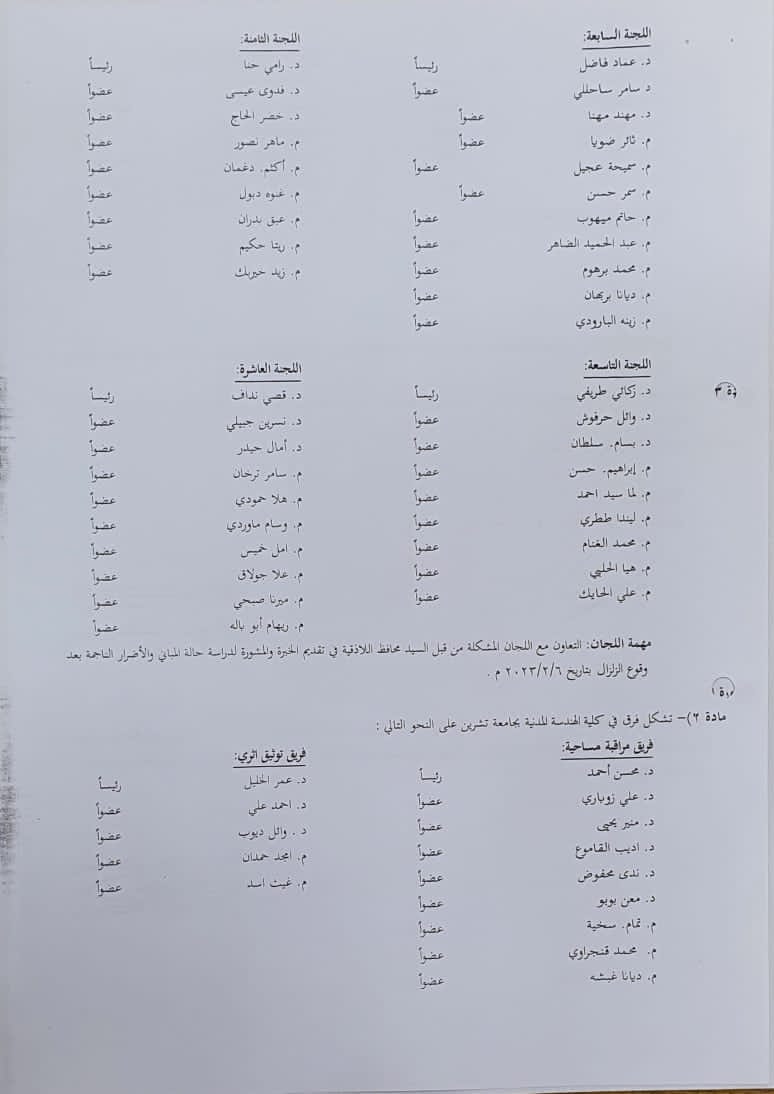 اللجنة السابعة:
د. عماد فاضل رئيساً
د سامر ساحللي عضواً
د. مهند مهنا عضواً
م. ثائر ضويا عضواً
م. سميحة عجيل عضواً
م. سمر حسن عضواً
م. حاتم ميهوب عضواً
م. عبد الحميد الضاهر عضواً
م. محمد برهوم عضواً
م. ديانا بريهان عضواً
م. زينه البارودي عضواً
اللجنة الثامنة:
د. رامي حنا رئيساً
د. فدوى عيسى عضواً
د. خضر الحاج عضواً
م. ماهر نصور عضواً
م. أكثم. دغمان عضواً
م. غنوه دبول عضواً
م. عبق بدران عضواً
م. ريتا حكيم عضواً
م. زيد خيربك عضواً
اللجنة التاسعة:
د. زكائي طريفي رئيساً
د. وائل حرفوش عضواً
د. بسام. سلطان عضواً
م. إبراهيم. حسن عضواً
م. لما سيد احمد عضواً
م. ليندا ططري عضواً
م. محمد الغنام عضواً
م. هيا الحلبي عضواً
م. علي الحايك عضواً
اللجنة العاشرة:
د. قصي نداف رئيساً
د. نسرين جبيلي عضواً
د. أمال حيدر عضواً
م. سامر ترخان عضواً
م. هلا حمودي عضواً
م. وسام ماوردي عضواً
م. امل خميس عضواً
م. علا جولاق عضواً
م. ميرنا صبحي عضواً
م. ريهام أبو باله عضواً
مهمة اللجان: التعاون مع اللجان المشكلة من قبل السيد محافظ اللاذقية في تقديم الخبرة والمشورة لدراسة حالة المباني والأضرار الناجمة بعد
وقوع الزلزال بتاريخ ٢٠٢٣/٢/٦ م .
مادة ٢)– تشكل فرق في كلية الهندسة المدنية بجامعة تشرين على النحو التالي :
فريق مراقبة مساحية:
د. محسن أحمد رئيساً
د. علي زوباري عضواً
د. منير يحيى عضواً
د. اديب القاموع عضواً
د. ندى محفوض عضواً
د. معن بوبو عضواً
م. تمام. سخية عضواً
م. محمد قنجراوي عضواً
م. ديانا غبشه عضواً
فريق توثيق اثري:
د. عمر الخليل رئيساً
د. احمد علي عضواً
د . وائل ديوب عضواً
م. امجد حمدان عضواً
م. غيث اسد عضواً